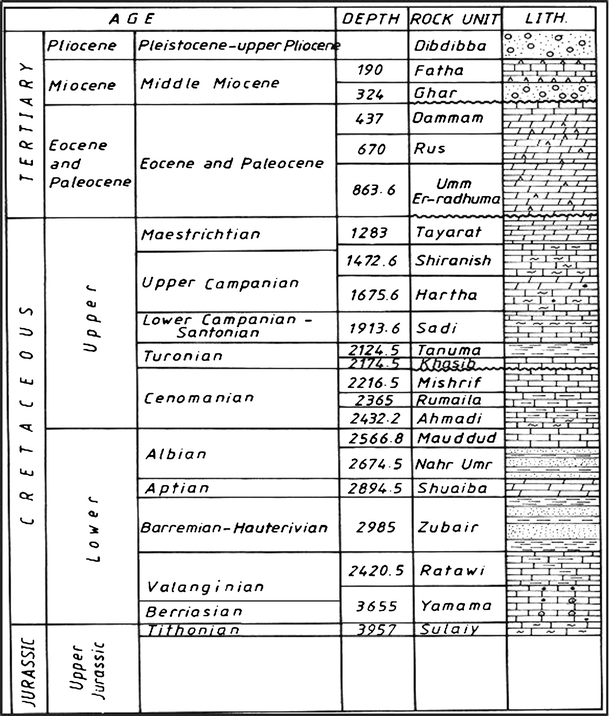 AGE DEPTH ROCK UNIT LITH.
TERTIARY
Pliocene Pleistocene-upper Pliocene Dibdibba
Miocene Middle Miocene
190 Fatha
324 Ghar
Eocene
and
Paleocene
Eocene and Paleocene
437 Dammam
670 Rus
863.6 Umm
Er-radhuma
CRETACEOUS
Upper
Maestrichtian 1283 Tayarat
Upper Campanian
1472.6 Shiranish
1675.6 Hartha
Lower Campanian-
Santonian
1913.6 Sadi
Turonian
2124.5 Tanuma
2174.5 Khasib
Cenomanian
2216.5 Mishrif
2365 Rumaila
2432.2 Ahmadi
Lower
Albian
2566.8 Mauddud
2674.5 Nahr Umr
Aptian 2894.5 Shuaiba
Barremian-Hauterivian 2985 Zubair
Valanginian
2420.5 Ratawi
Berriasian
3655 Yamama
JURASSIC
Upper
Jurassic
Tithonian 3957 Sulaiy